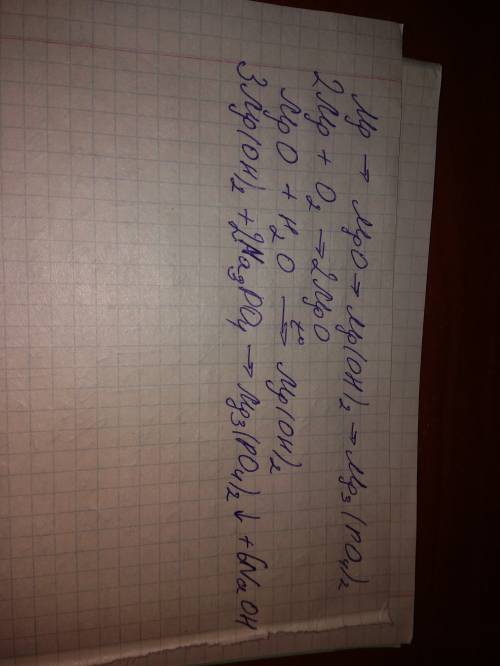 Mg → MgO → Mg(OH)₂ → Mg₃(PO₄)₂
2Mg + O₂ → 2MgO
MgO + H₂O →^t° Mg(OH)₂
3Mg(OH)₂ + 2Na₃PO₄ → Mg₃(PO₄)₂↓ + 6NaOH